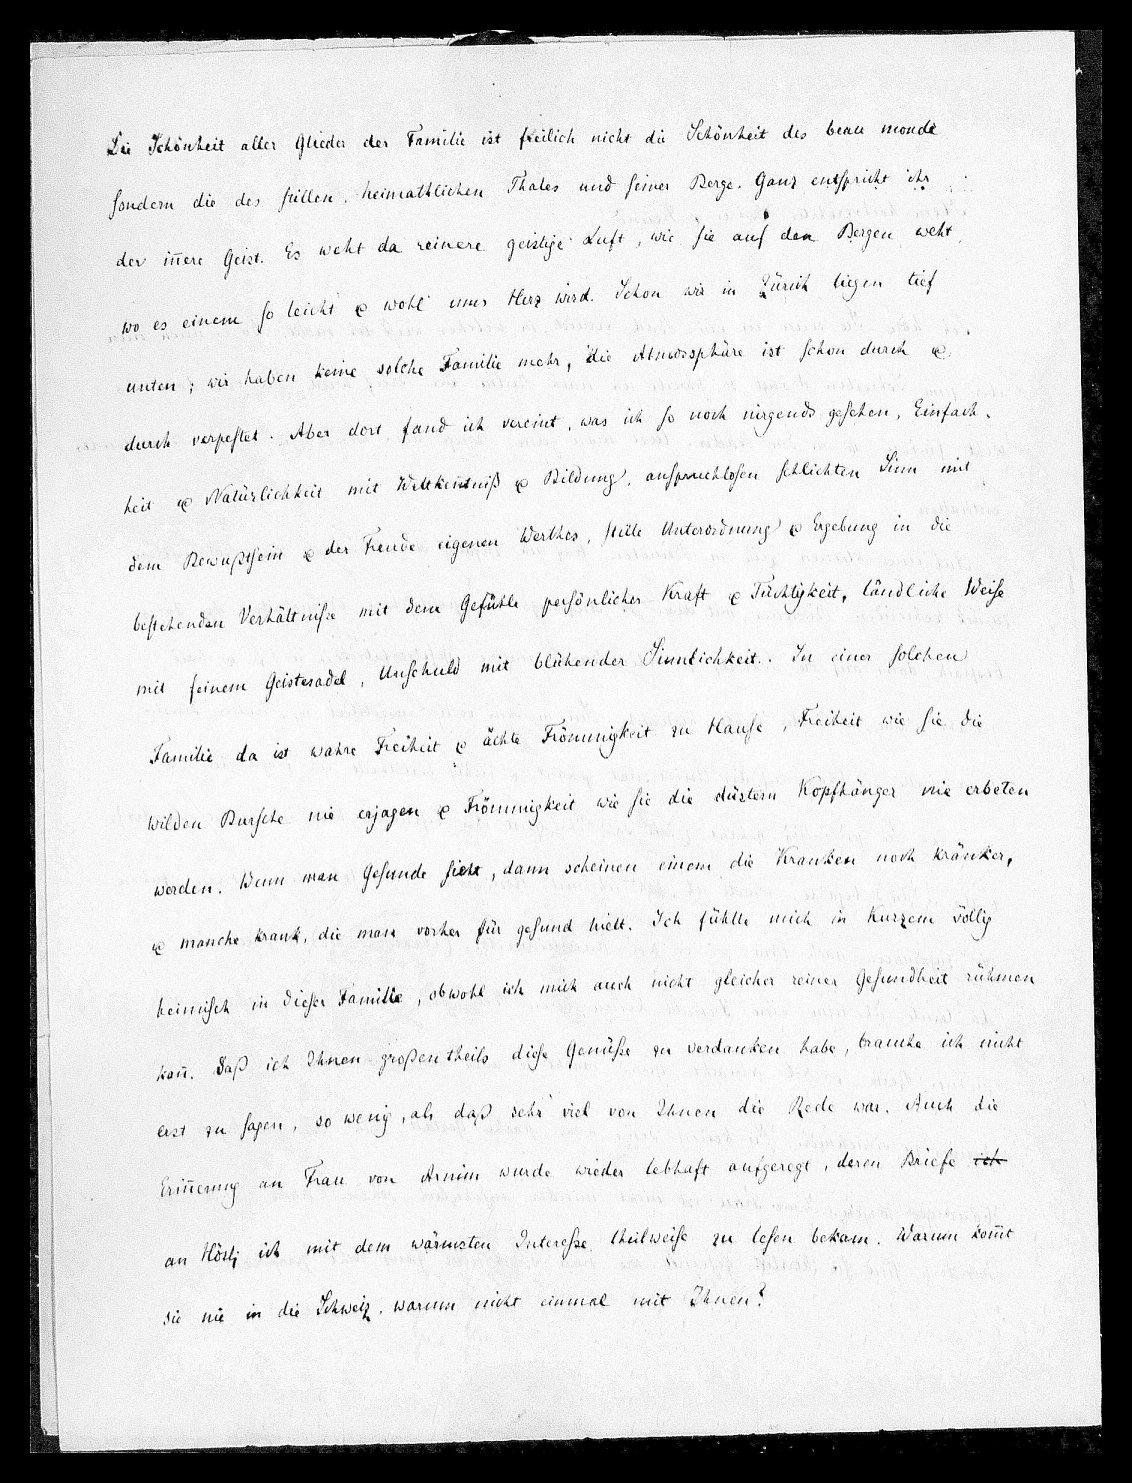 Die Schönheit aller Glieder der Familie ist freilich nicht die Schönheit des beau monde
sondern die des stillen, heimathlichen Thales und seiner Berge. Ganz entspricht ihr
der iñere Geist. Es weht da reinere geistige Luft, wie sie auf den Bergen weht,
wo es einem so leicht & wohl ums Herz wird. Schon wir in Zürich liegen tief
unten; wir haben keine solche Familie mehr, die Atmossphäre ist schon durch &
durch verpestet. Aber dort fand ich vereint, was ich so noch nirgends gesehen, Einfach-
heit & Natürlichkeit mit Weltkentniß & Bildung, anspruchlosen schlichten Sinn mit
dem Bewußtsein & der Freude eigenen Werthes, stille Unterordnung & Ergebung in die
bestehenden Verhältniße mit dem Gefühle persönlicher Kraft & Tüchtigkeit, ländliche Weise
mit feinem Geistesadel, Unschuld mit blühender Sinnlichkeit. In einer solchen
Familie da ist wahre Freiheit & ächte Frömmigkeit zu Hause, Freiheit wie sie die
wilden Bursche nie erjagen & Frömmigkeit wie sie die düstern Kopfhänger nie erbeten
werden. Wenn man Gesunde sieht, dann scheinen einem die Kranken noch kränker,
& manche krank, die man vorher für gesund hielt. Ich fühlte mich in Kurzem völlig
heimisch in dieser Familie, obwohl ich mich auch nicht gleicher reiner Gesundheit rühmen
kañ. Daß ich Ihnen großentheils diese Genüße zu verdanken habe, brauche ich nicht
erst zu sagen, so wenig, als daß sehr viel von Ihnen die Rede war. Auch die
Eriñerung an Frau von Arnim wurde wieder lebhaft aufgeregt, deren Briefe ich
an Hösli ich mit dem wärmsten Intereße theilweise zu lesen bekam. Warum kom̃t
sie nie in die Schweiz, warum nicht einmal mit Ihnen?